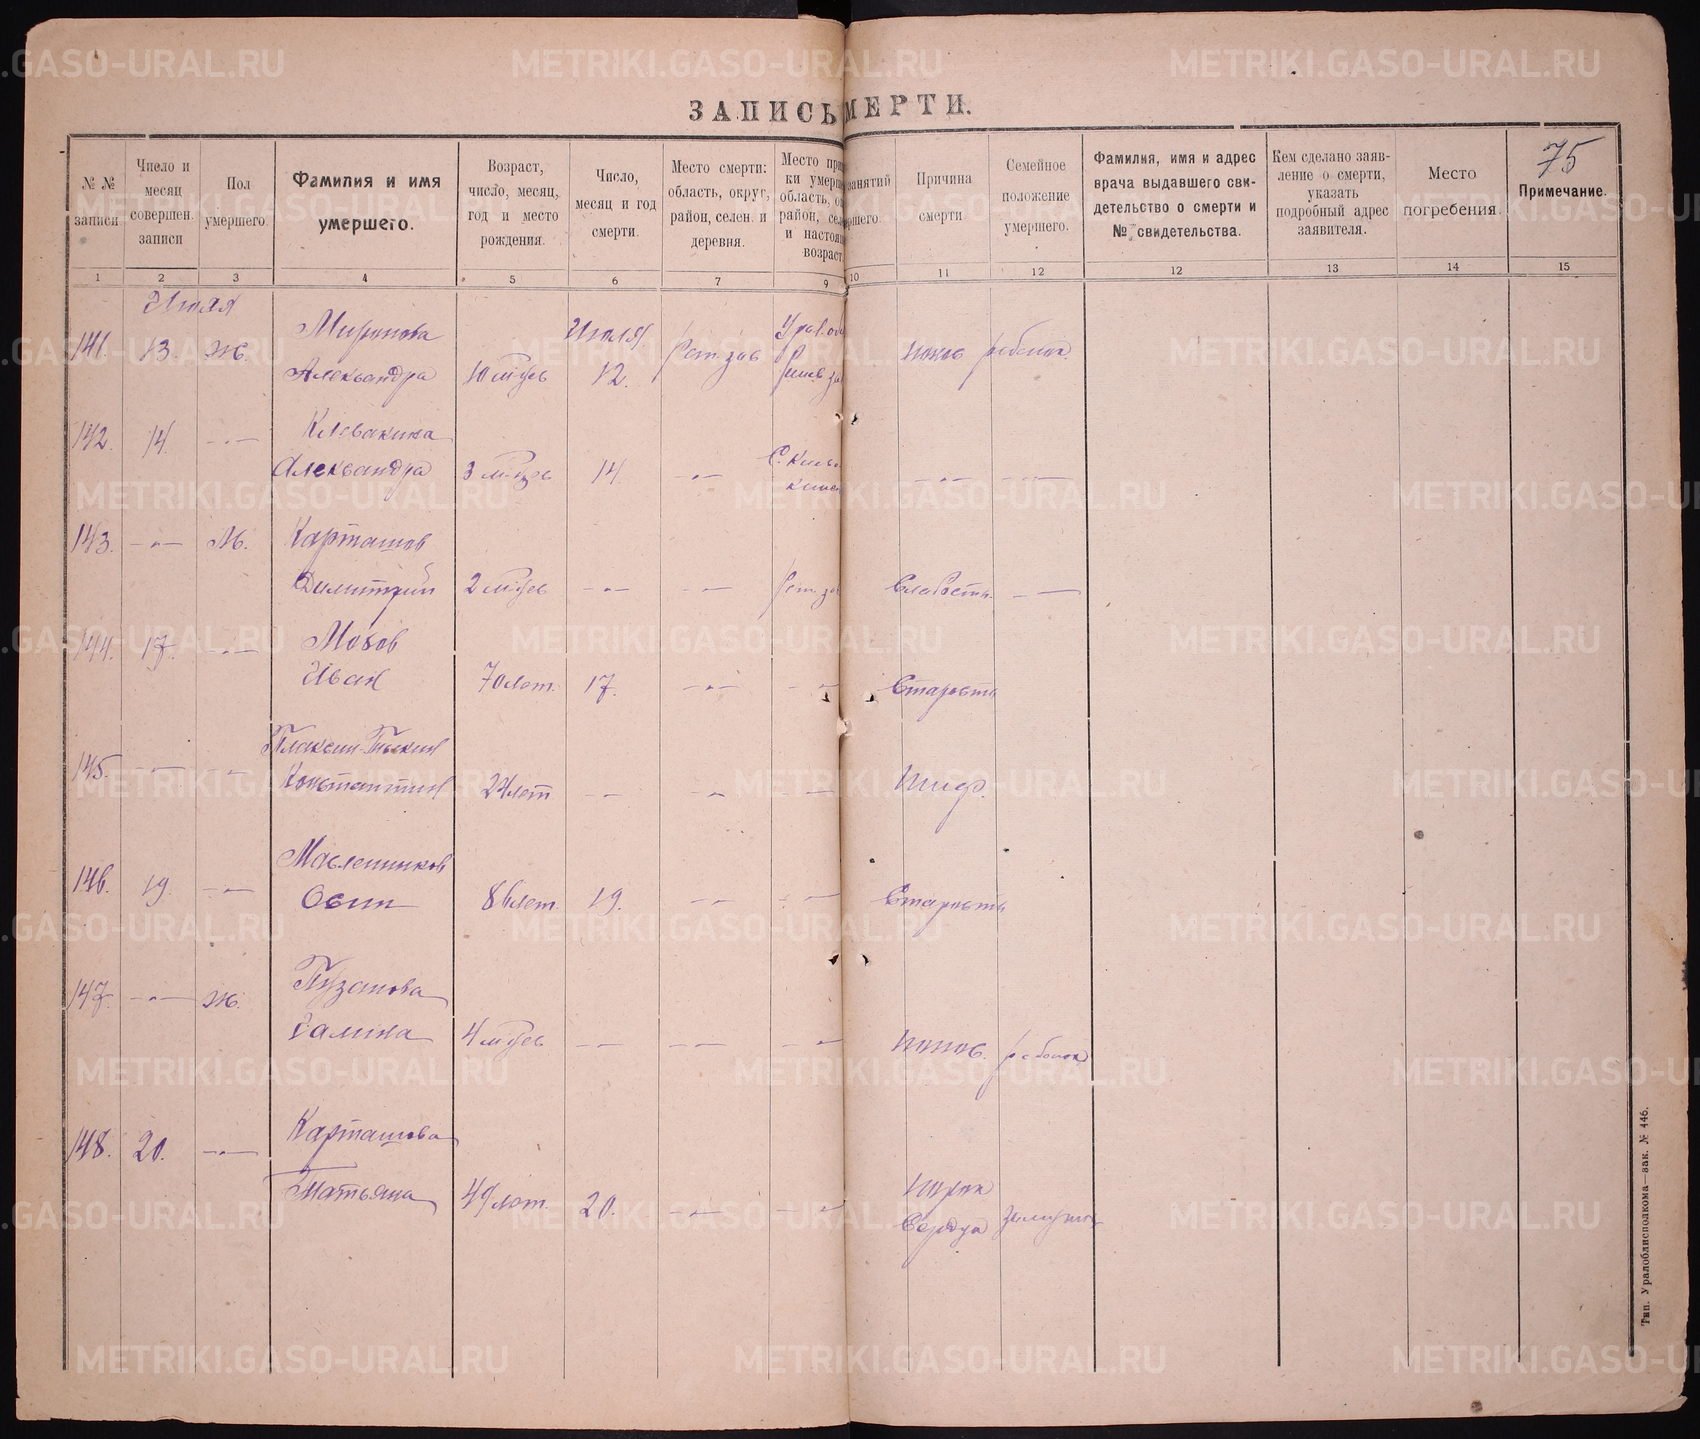 ЗАПИСЬ МЕРТИ.
75
№ № записи
Число и месяц совершен. записи
Пол умершего.
Фамилия и имя умершего.
Возраст, число, месяц, год и место рождения.
Число, месяц и год смерти.
Место смерти: область, округ, район, селен. и деревня.
Место при
ки умерш
область, о
район, сел
и настоя
возраст.
занятий
ршего.
Причина смерти
Семейное положение умершего.
Фамилия, имя и адрес врача выдавшего свидетельство о смерти и № свидетельства.
Кем сделано заявление о смерти, указать подробный адрес заявителя.
Место погребения.
Примечание.
1 2 3 4 5 6 7 9 10 11 12 12 13 14 15
Июля
141. 13. ж. Миронова Июля Урал. о
Александра 10 м-цев 12. понос ребенок.
142. 14. -"- Клевакина
Александра 3 м-цев 14. -"- -"- -"-
143. -"- М. Карташов
Димитрий 2 м-цев -"- -"- Слабость. -"-
144. 17. -"- Мохов
Иван 70 лет. 17. -"- -"- Старость
145. -"- -"-
Константин 24 лет -"- -"- - тиф.
146. 19. -"- Масленников
Осип 86 лет. 19. -"- -"- Старость
147. -"- ж. Пузанова
Галина 4 м-цев -"- -"- -"- понос. ребенок
148. 20. -"- Карташова
Татьяна 49 лет. 20. -"- -"- порок
Сердца замужем
Тип. Уралоблисполкома—зак. № 446.
METRIKI.GASO-URAL.RU